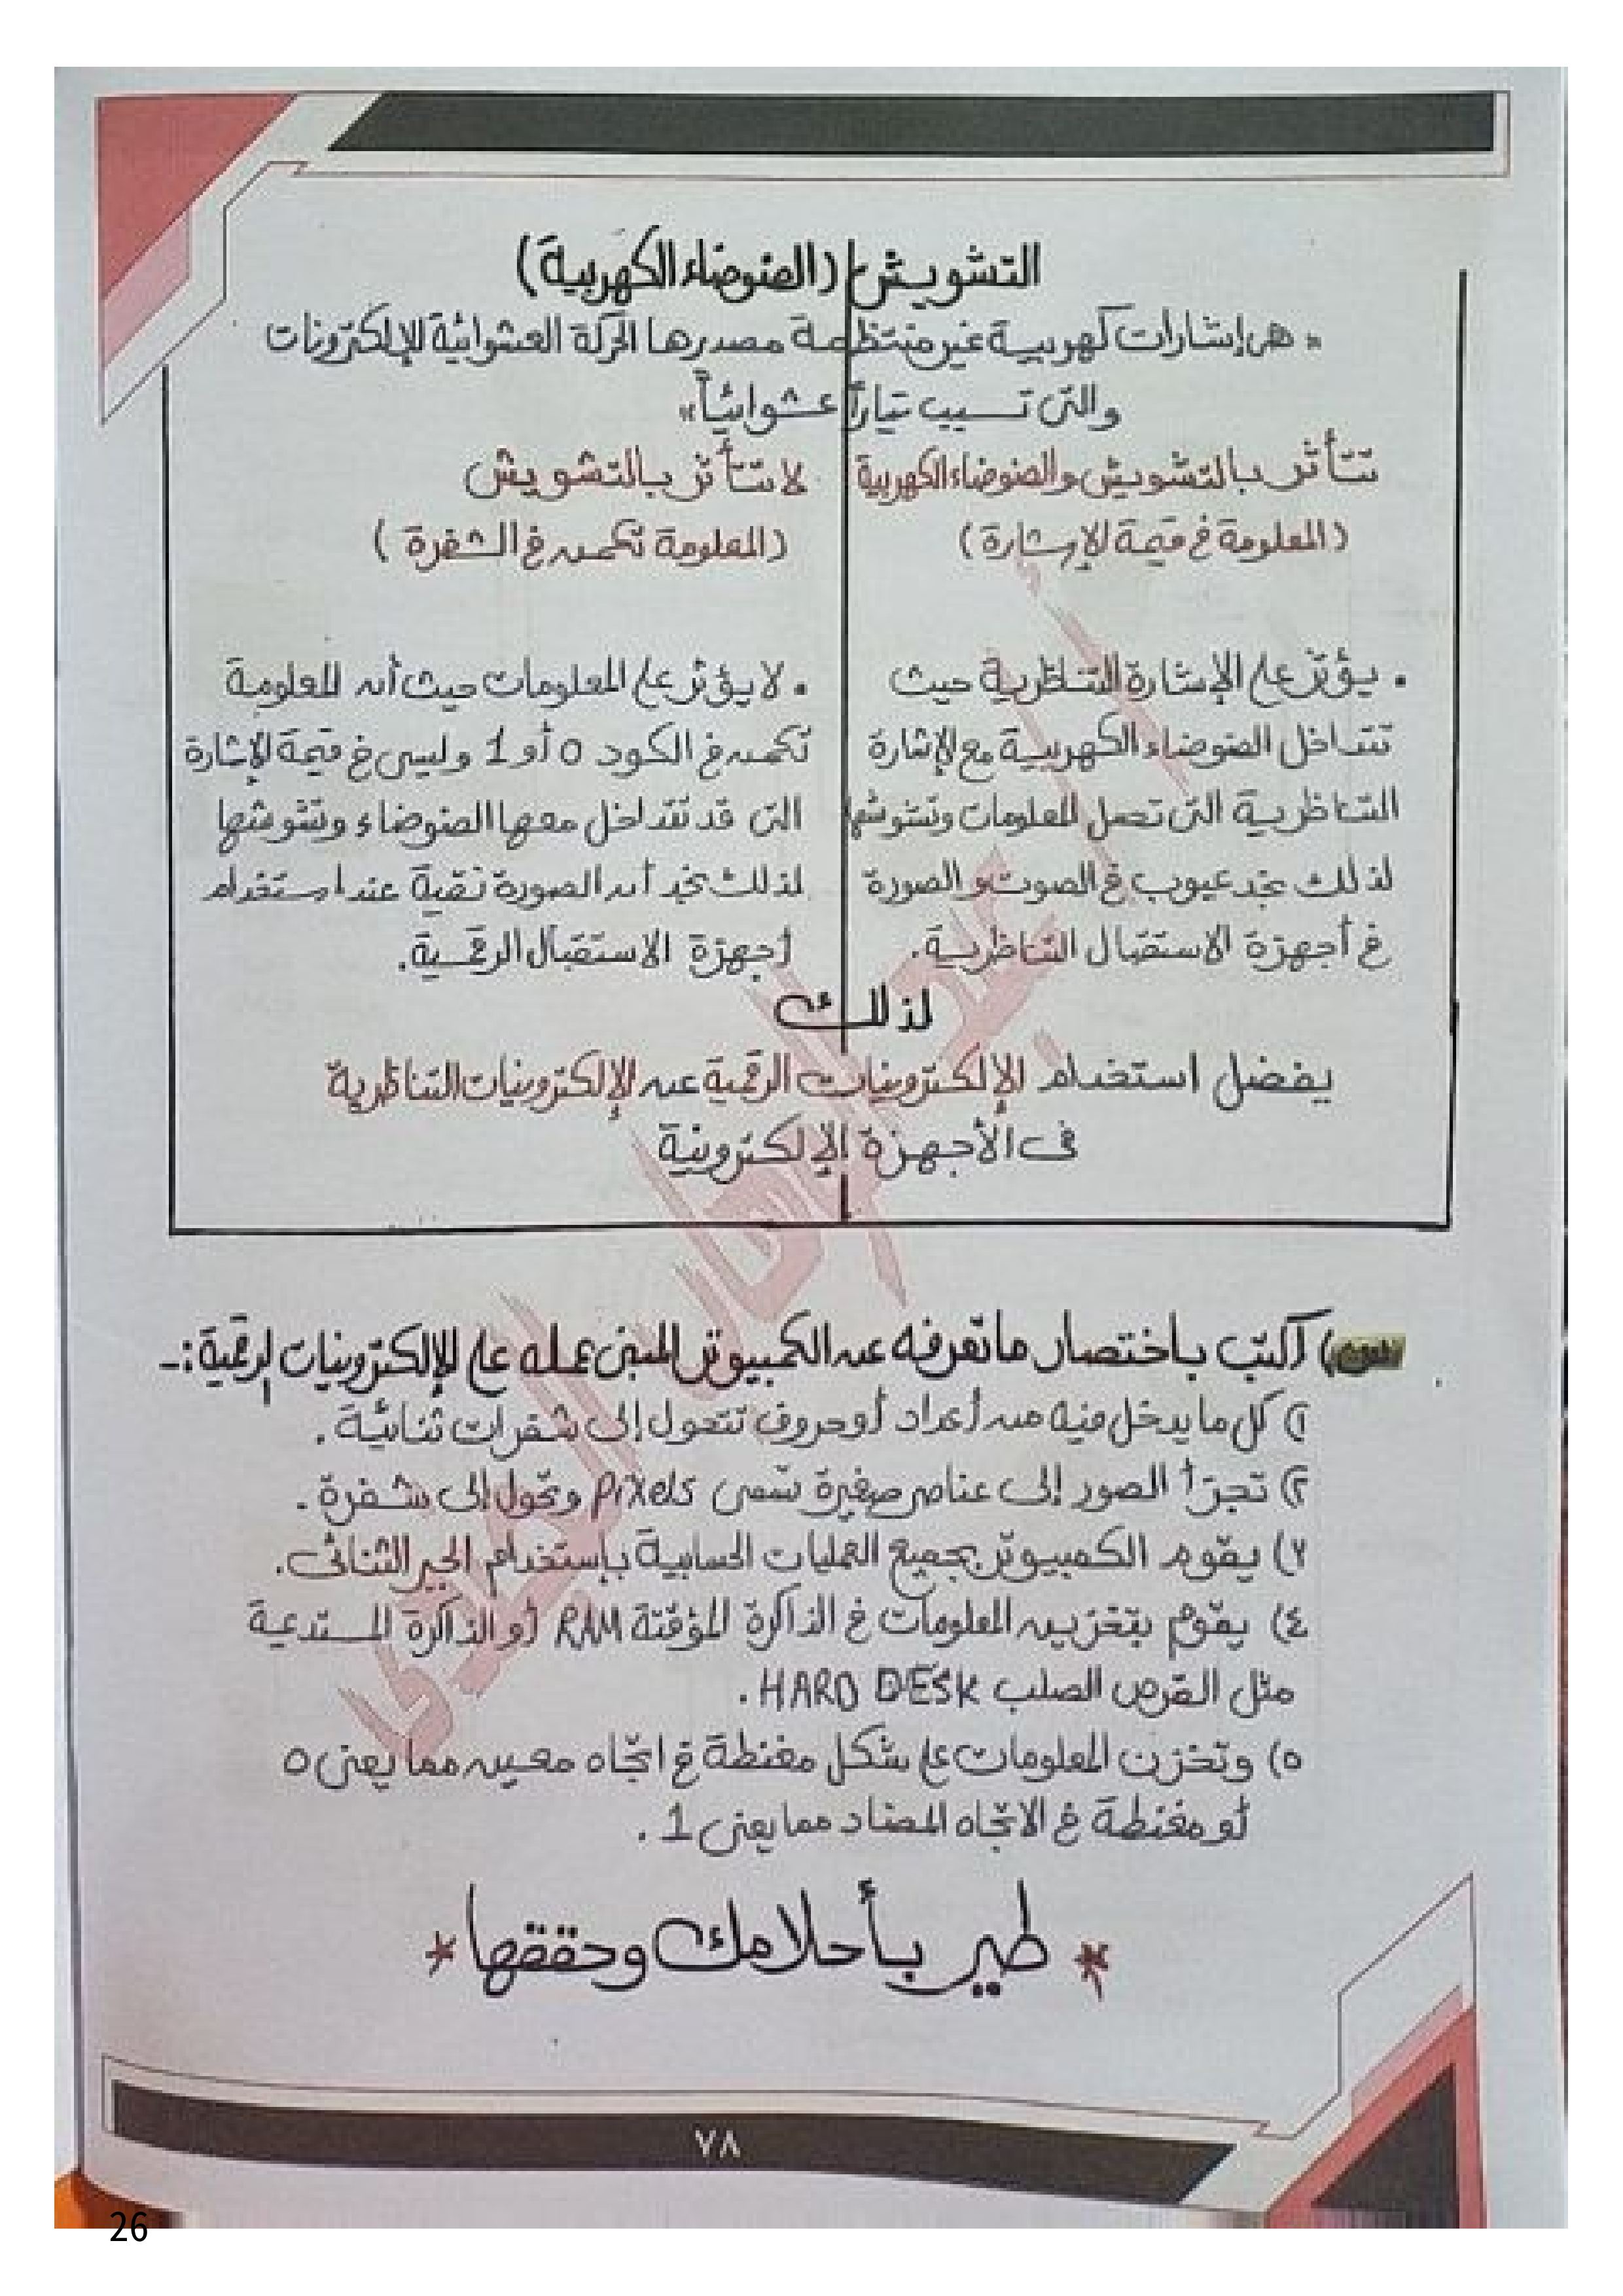 التشويش (الضوضاء الكهربية)
" هى إشارات كهربية غير منتظمة مصدرها الحركة العشوائية للإلكترونات
والتى تسبب تياراً عشوائياً "
تتأثر بالتشويش والضوضاء الكهربية
(المعلومة فى قيمة الإشارة)
• يؤثر على الإشارة التناظرية حيث
تتداخل الضوضاء الكهربية مع الإشارة
التناظرية التى تحمل المعلومات وتشوشها
لذلك نجد عيوب فى الصوت و الصورة
فى أجهزة الاستقبال التناظرية.
لا تتأثر بالتشويش
(المعلومة تكمن فى الشفرة)
• لا يؤثر على المعلومات حيث أن المعلومة
تكمن فى الكود 0 أو 1 وليس فى قيمة الإشارة
التى قد تتداخل معها الضوضاء وتشوشها
لذلك نجد أن الصورة نقية عند استخدام
أجهزة الاستقبال الرقمية.
لذلك
يفضل استخدام الإلكترونيات الرقمية عن الإلكترونيات التناظرية
فى الأجهزة الإلكترونية
س) اكتب باختصار ما تعرفه عن الكمبيوتر المبنى عمله على الإلكترونيات الرقمية :-
١) كل ما يدخل فيه من أعداد أو حروف تتحول إلى شفرات ثنائية .
٢) تجزأ الصور إلى عناصر صغيرة تسمى Pixels وتحول إلى شفرة .
٣) يقوم الكمبيوتر بجميع العمليات الحسابية بإستخدام الجبر الثنائى.
٤) يقوم بتخزين المعلومات فى الذاكرة المؤقتة RAM أو الذاكرة المستديمة
مثل القرص الصلب HARD DESK .
٥) وتخزن المعلومات على شكل مغنطة فى اتجاه معين مما يعنى 0
أو مغنطة فى الاتجاه المضاد مما يعنى 1 .
* طير بأحلامك وحققها *
٧٨
26